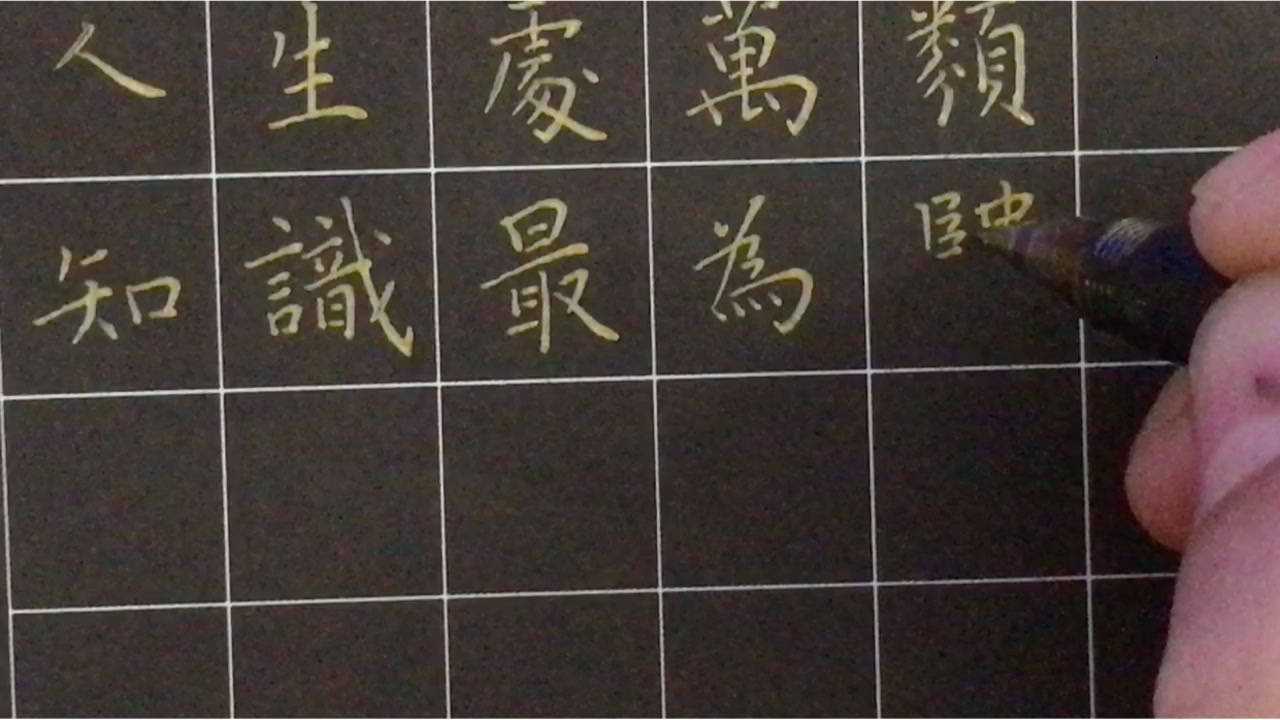 人生處萬類
知識最為